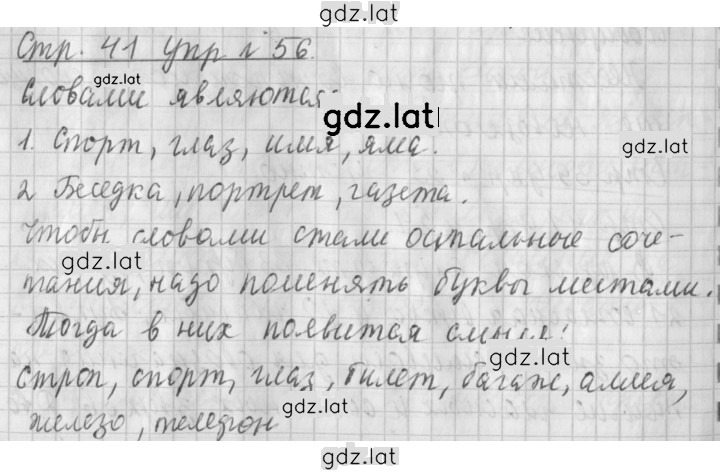 gdz.lat
Стр. 41 упр № 56.
gdz.lat
Словами являются:
gdz.lat
1. Спорт, глаз, имя, яма.
2 Беседка, портрет, газета.
Чтобы словами стали остальные соче-
gdz.lat
тания, надо поменять буквы местами.
Тогда в них появится смысл!
gdz.lat
строп, спорт, глаз, билет, багаж, аллея,
gdz.lat
железо, телефон
gdz.lat